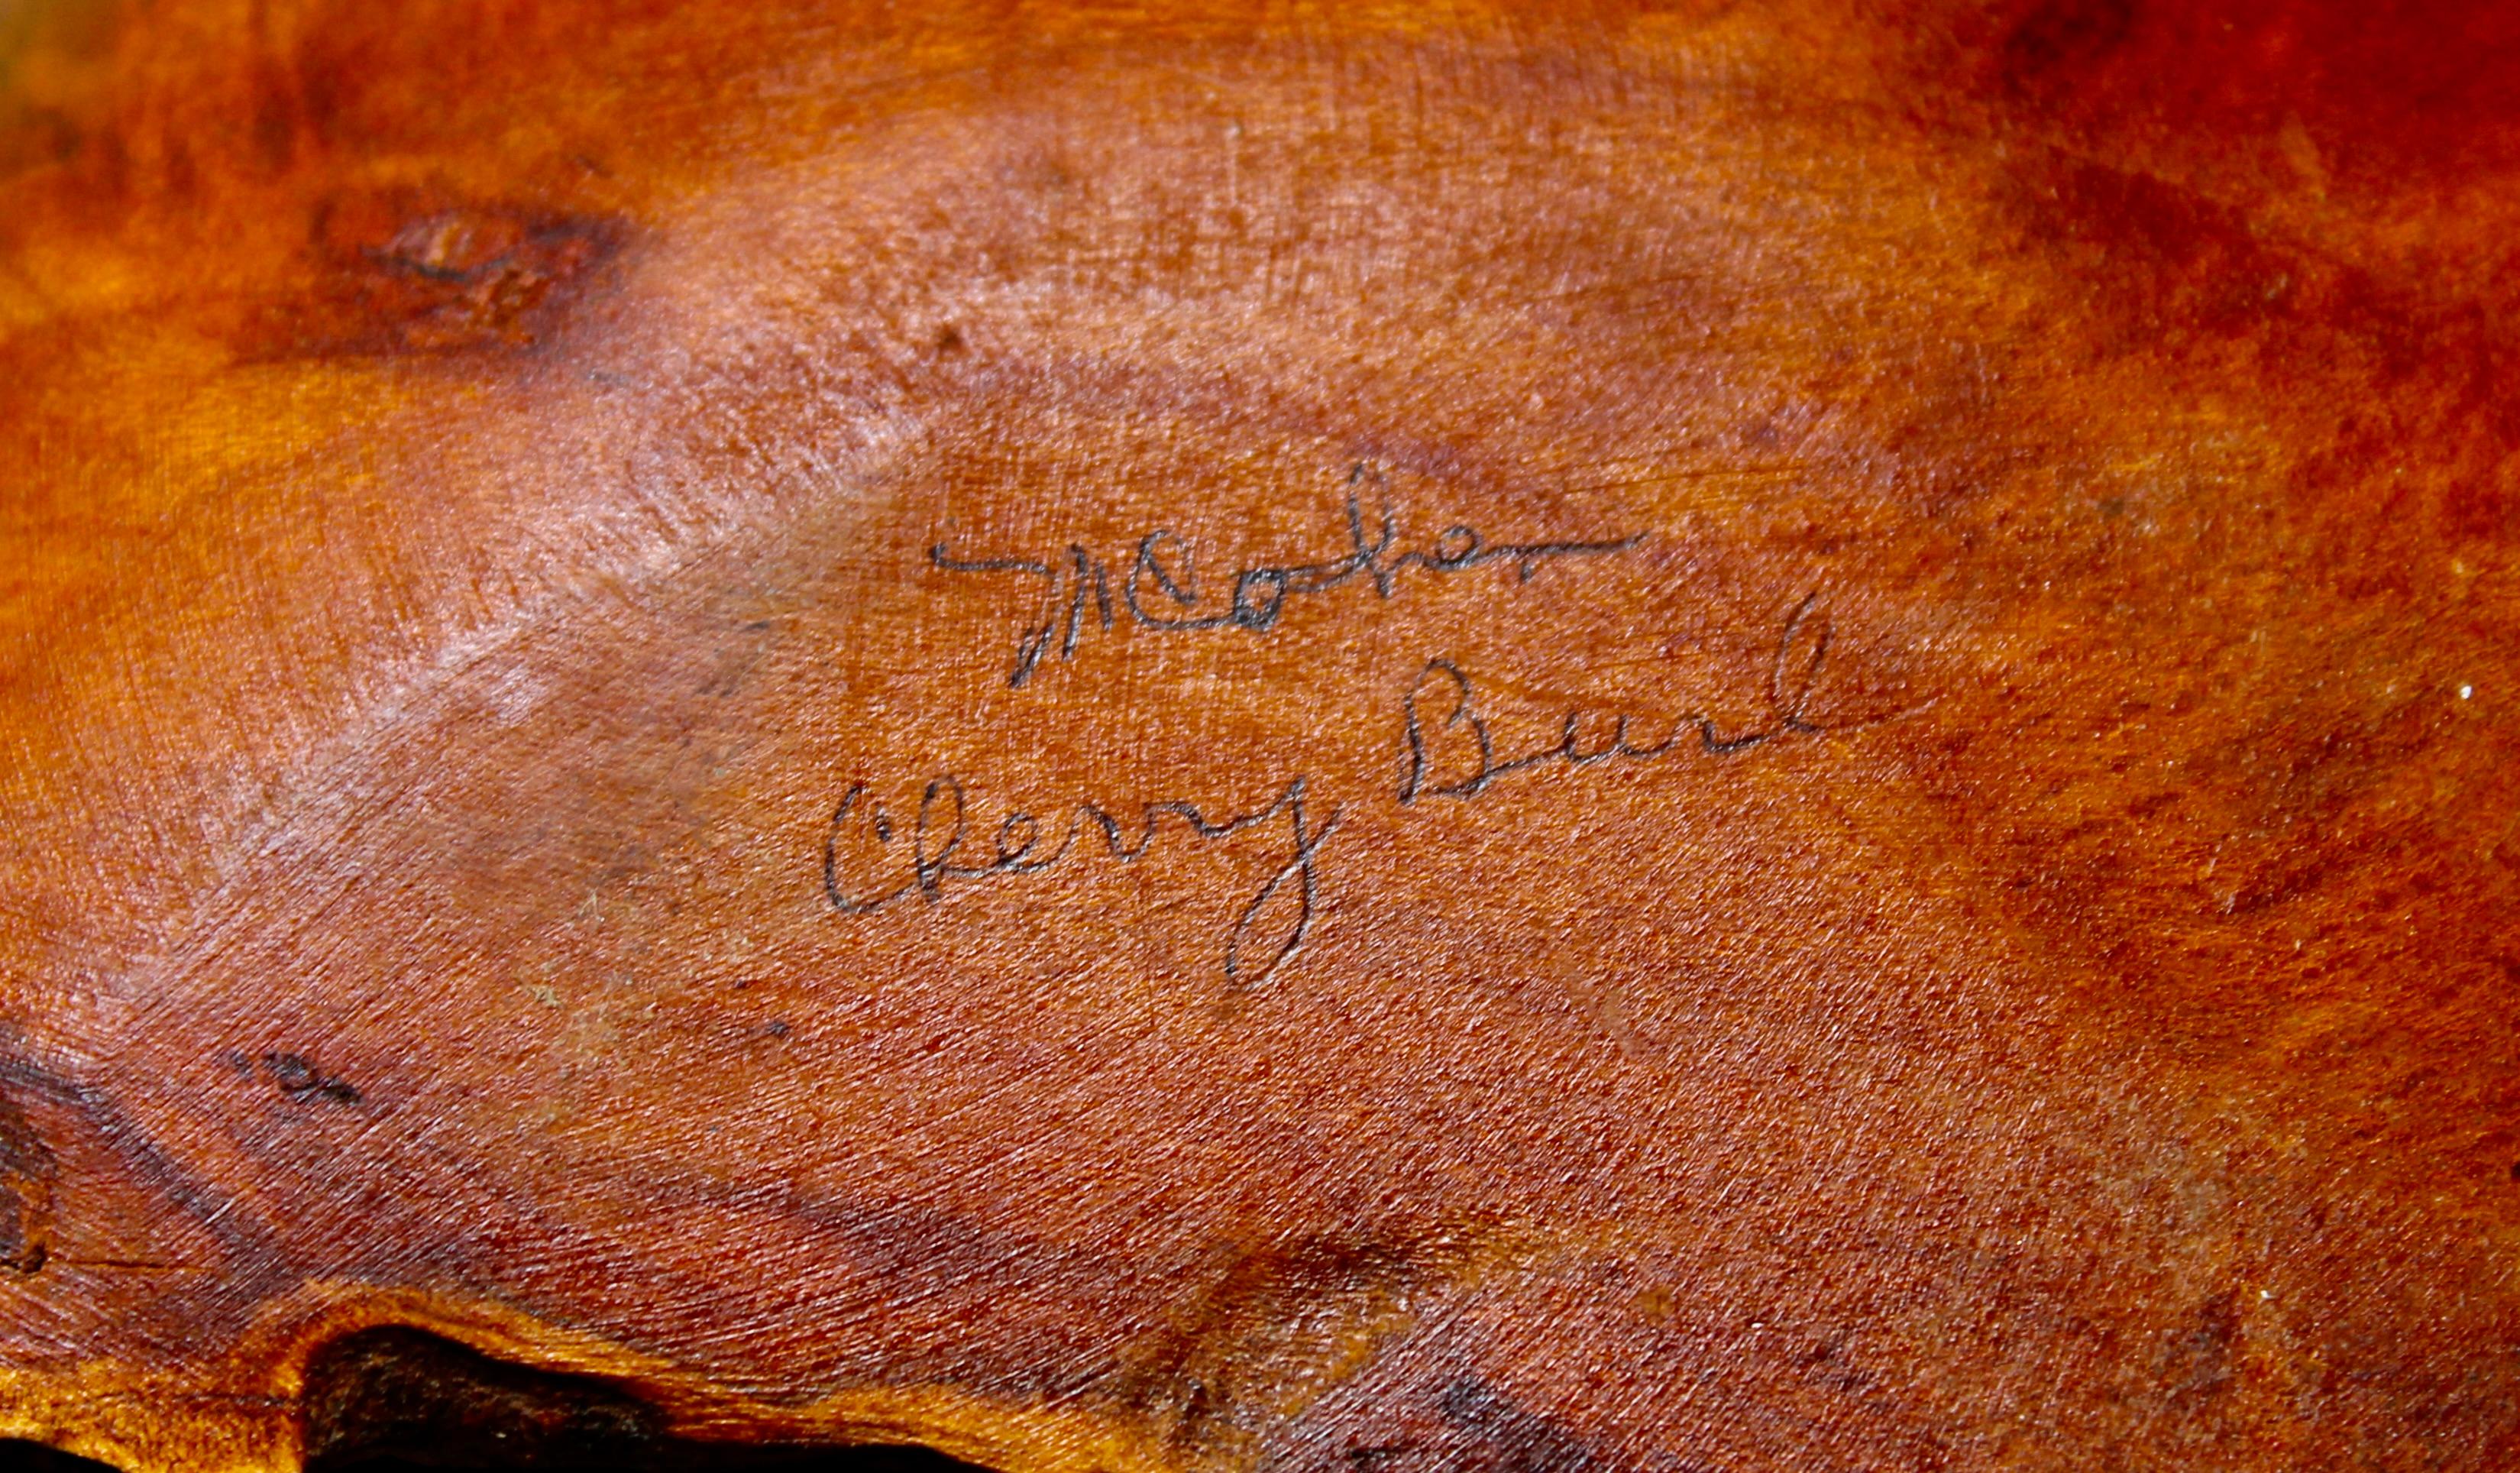 M Cohen
Cherry Burl